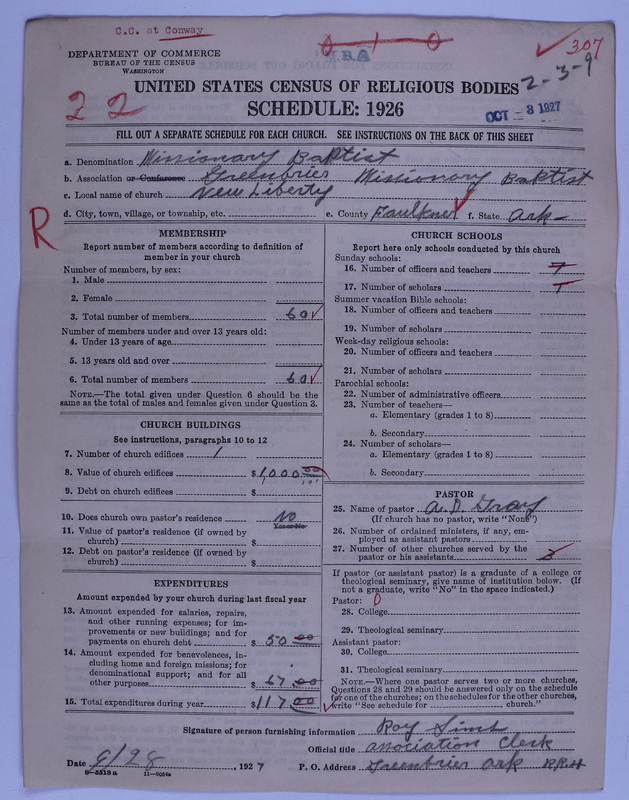 C.C. at Conway
0 1 0
M.B.A
307
DEPARTMENT OF COMMERCE
BUREAU OF THE CENSUS
WASHINGTON
UNITED STATES CENSUS OF RELIGIOUS BODIES
2-3-9
22
SCHEDULE: 1926
OCT - 3 1927
FILL OUT A SEPARATE SCHEDULE FOR EACH CHURCH. SEE INSTRUCTIONS ON THE BACK OF THIS SHEET
a. Denomination Missionary Baptist
b. Association or Conference Greenbrier Missionary Baptist
c. Local name of church New Liberty
d. City, town, village, or township, etc. e. County Faulkner f. State Ark
R
MEMBERSHIP
Report number of members according to definition of
member in your church
Number of members, by sex:
1. Male
2. Female
3. Total number of members 60
Number of members under and over 13 years old:
4. Under 13 years of age
5. 13 years old and over
6. Total number of members 60
NOTE.—The total given under Question 6 should be the
same as the total of males and females given under Question 3.
CHURCH BUILDINGS
See instructions, paragraphs 10 to 12
7. Number of church edifices 1
8. Value of church edifices $1,000.00
9. Debt on church edifices $
10. Does church own pastor's residence No
Yes or No
11. Value of pastor's residence (if owned by
church) $
12. Debt on pastor's residence (if owned by
church) $
EXPENDITURES
Amount expended by your church during last fiscal year
13. Amount expended for salaries, repairs,
and other running expenses; for im-
provements or new buildings; and for
payments on church debt $ 50 00
14. Amount expended for benevolences, in-
cluding home and foreign missions; for
denominational support; and for all
other purposes $ 67 00
15. Total expenditures during year $117 00
CHURCH SCHOOLS
Report here only schools conducted by this church
Sunday schools:
16. Number of officers and teachers
17. Number of scholars
Summer vacation Bible schools:
18. Number of officers and teachers
19. Number of scholars
Week-day religious schools:
20. Number of officers and teachers
21. Number of scholars
Parochial schools:
22. Number of administrative officers
23. Number of teachers—
a. Elementary (grades 1 to 8)
b. Secondary
24. Number of scholars—
a. Elementary (grades 1 to 8)
b. Secondary
PASTOR
25. Name of pastor A. D. Gray
(If church has no pastor, write "None")
26. Number of ordained ministers, if any, em-
ployed as assistant pastors
27. Number of other churches served by the
pastor or his assistants 3
If pastor (or assistant pastor) is a graduate of a college or
theological seminary, give name of institution below. (If
not a graduate, write "No" in the space indicated.)
Pastor: 0
28. College
29. Theological seminary
Assistant pastor:
30. College
31. Theological seminary
NOTE.—Where one pastor serves two or more churches,
Questions 28 and 29 should be answered only on the schedule
for one of the churches; on the schedules for the other churches,
write "See schedule for church."
Signature of person furnishing information Roy Sims
Official title Association Clerk
Date 9/28, 1927 P. O. Address Greenbrier Ark RR#
8-5518 a 11-9054a